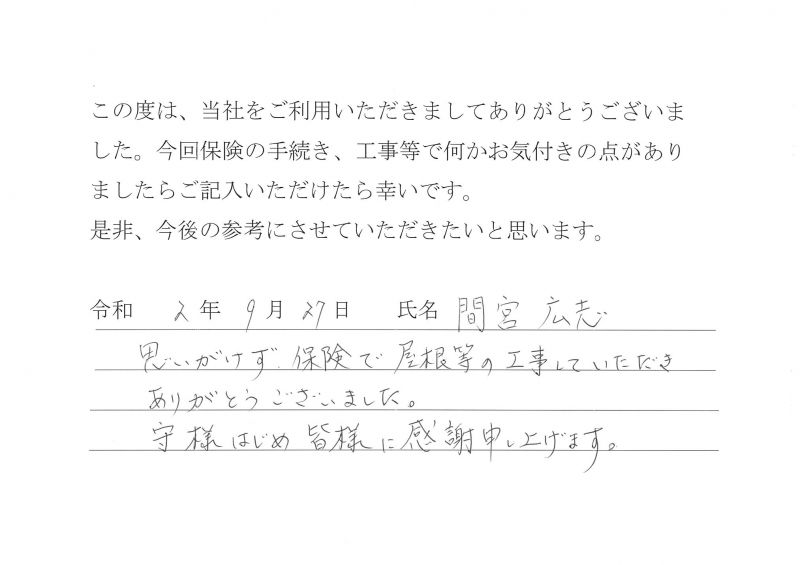 この度は、当社をご利用いただきましてありがとうございま
した。今回保険の手続き、工事等で何かお気付きの点があり
ましたらご記入いただけたら幸いです。
是非、今後の参考にさせていただきたいと思います。
令和 2年 9月 27日 氏名 間宮 広志
思いがけず、保険で屋根等の工事していただき
ありがとうございました。
守様はじめ皆様に感謝申し上げます。